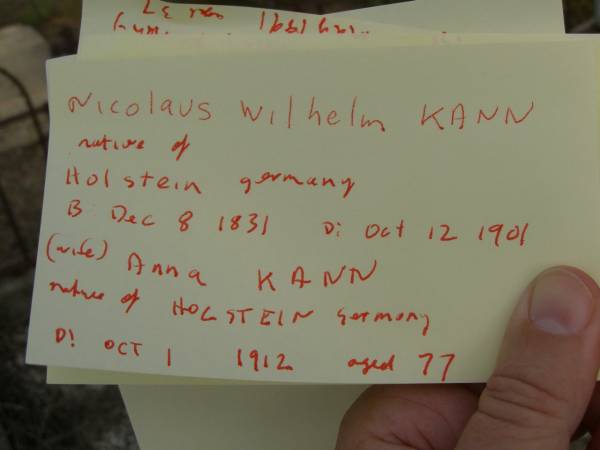 Nicolaus Wilhelm KANN
native of
Holstein germany
B Dec 8 1831 D: Oct 12 1901
(wife) Anna KANN
native of HOLSTEIN Germany
D: OCT 1 1912 aged 77